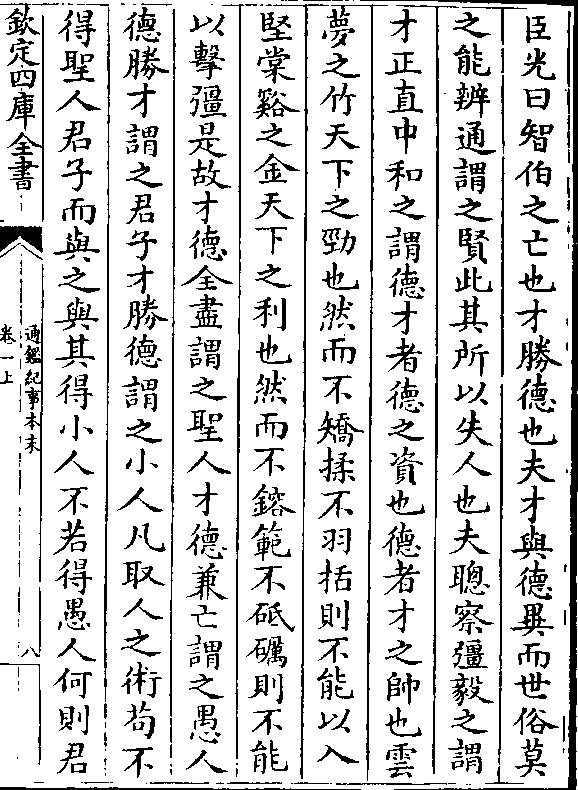 臣光曰智伯之亡也才勝德也夫才與德異而世俗莫
之能辨通謂之賢此其所以失人也夫聰察彊毅之謂
才正直中和之謂德才者德之資也德者才之帥也雲
夢之竹天下之勁也然而不矯揉不羽括則不能以入
堅棠谿之金天下之利也然而不鎔範不砥礪則不能
以擊彊是故才德全盡謂之聖人才德兼亡謂之愚人
德勝才謂之君子才勝德謂之小人凡取人之術苟不
得聖人君子而與之與其得小人不若得愚人何則君
欽定四庫全書
通鑑紀事本末
卷一上
八